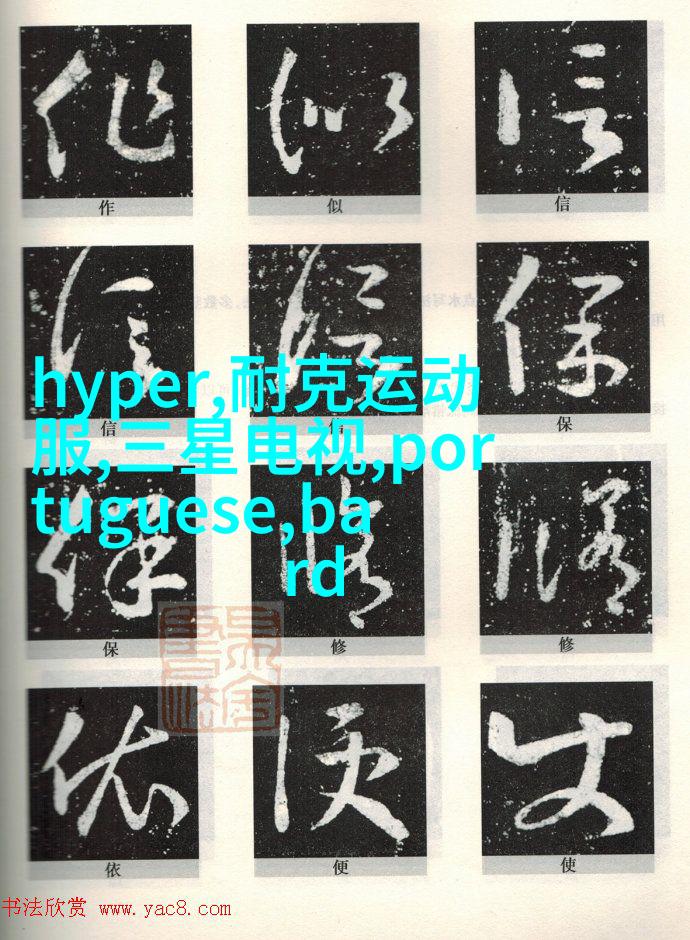 作 似 信
信 信 保
hyper,耐克运动
服,三星电视,por
tuguese,ba
rd
保 修 修
依 便 使
书法欣赏 www.yac8.com